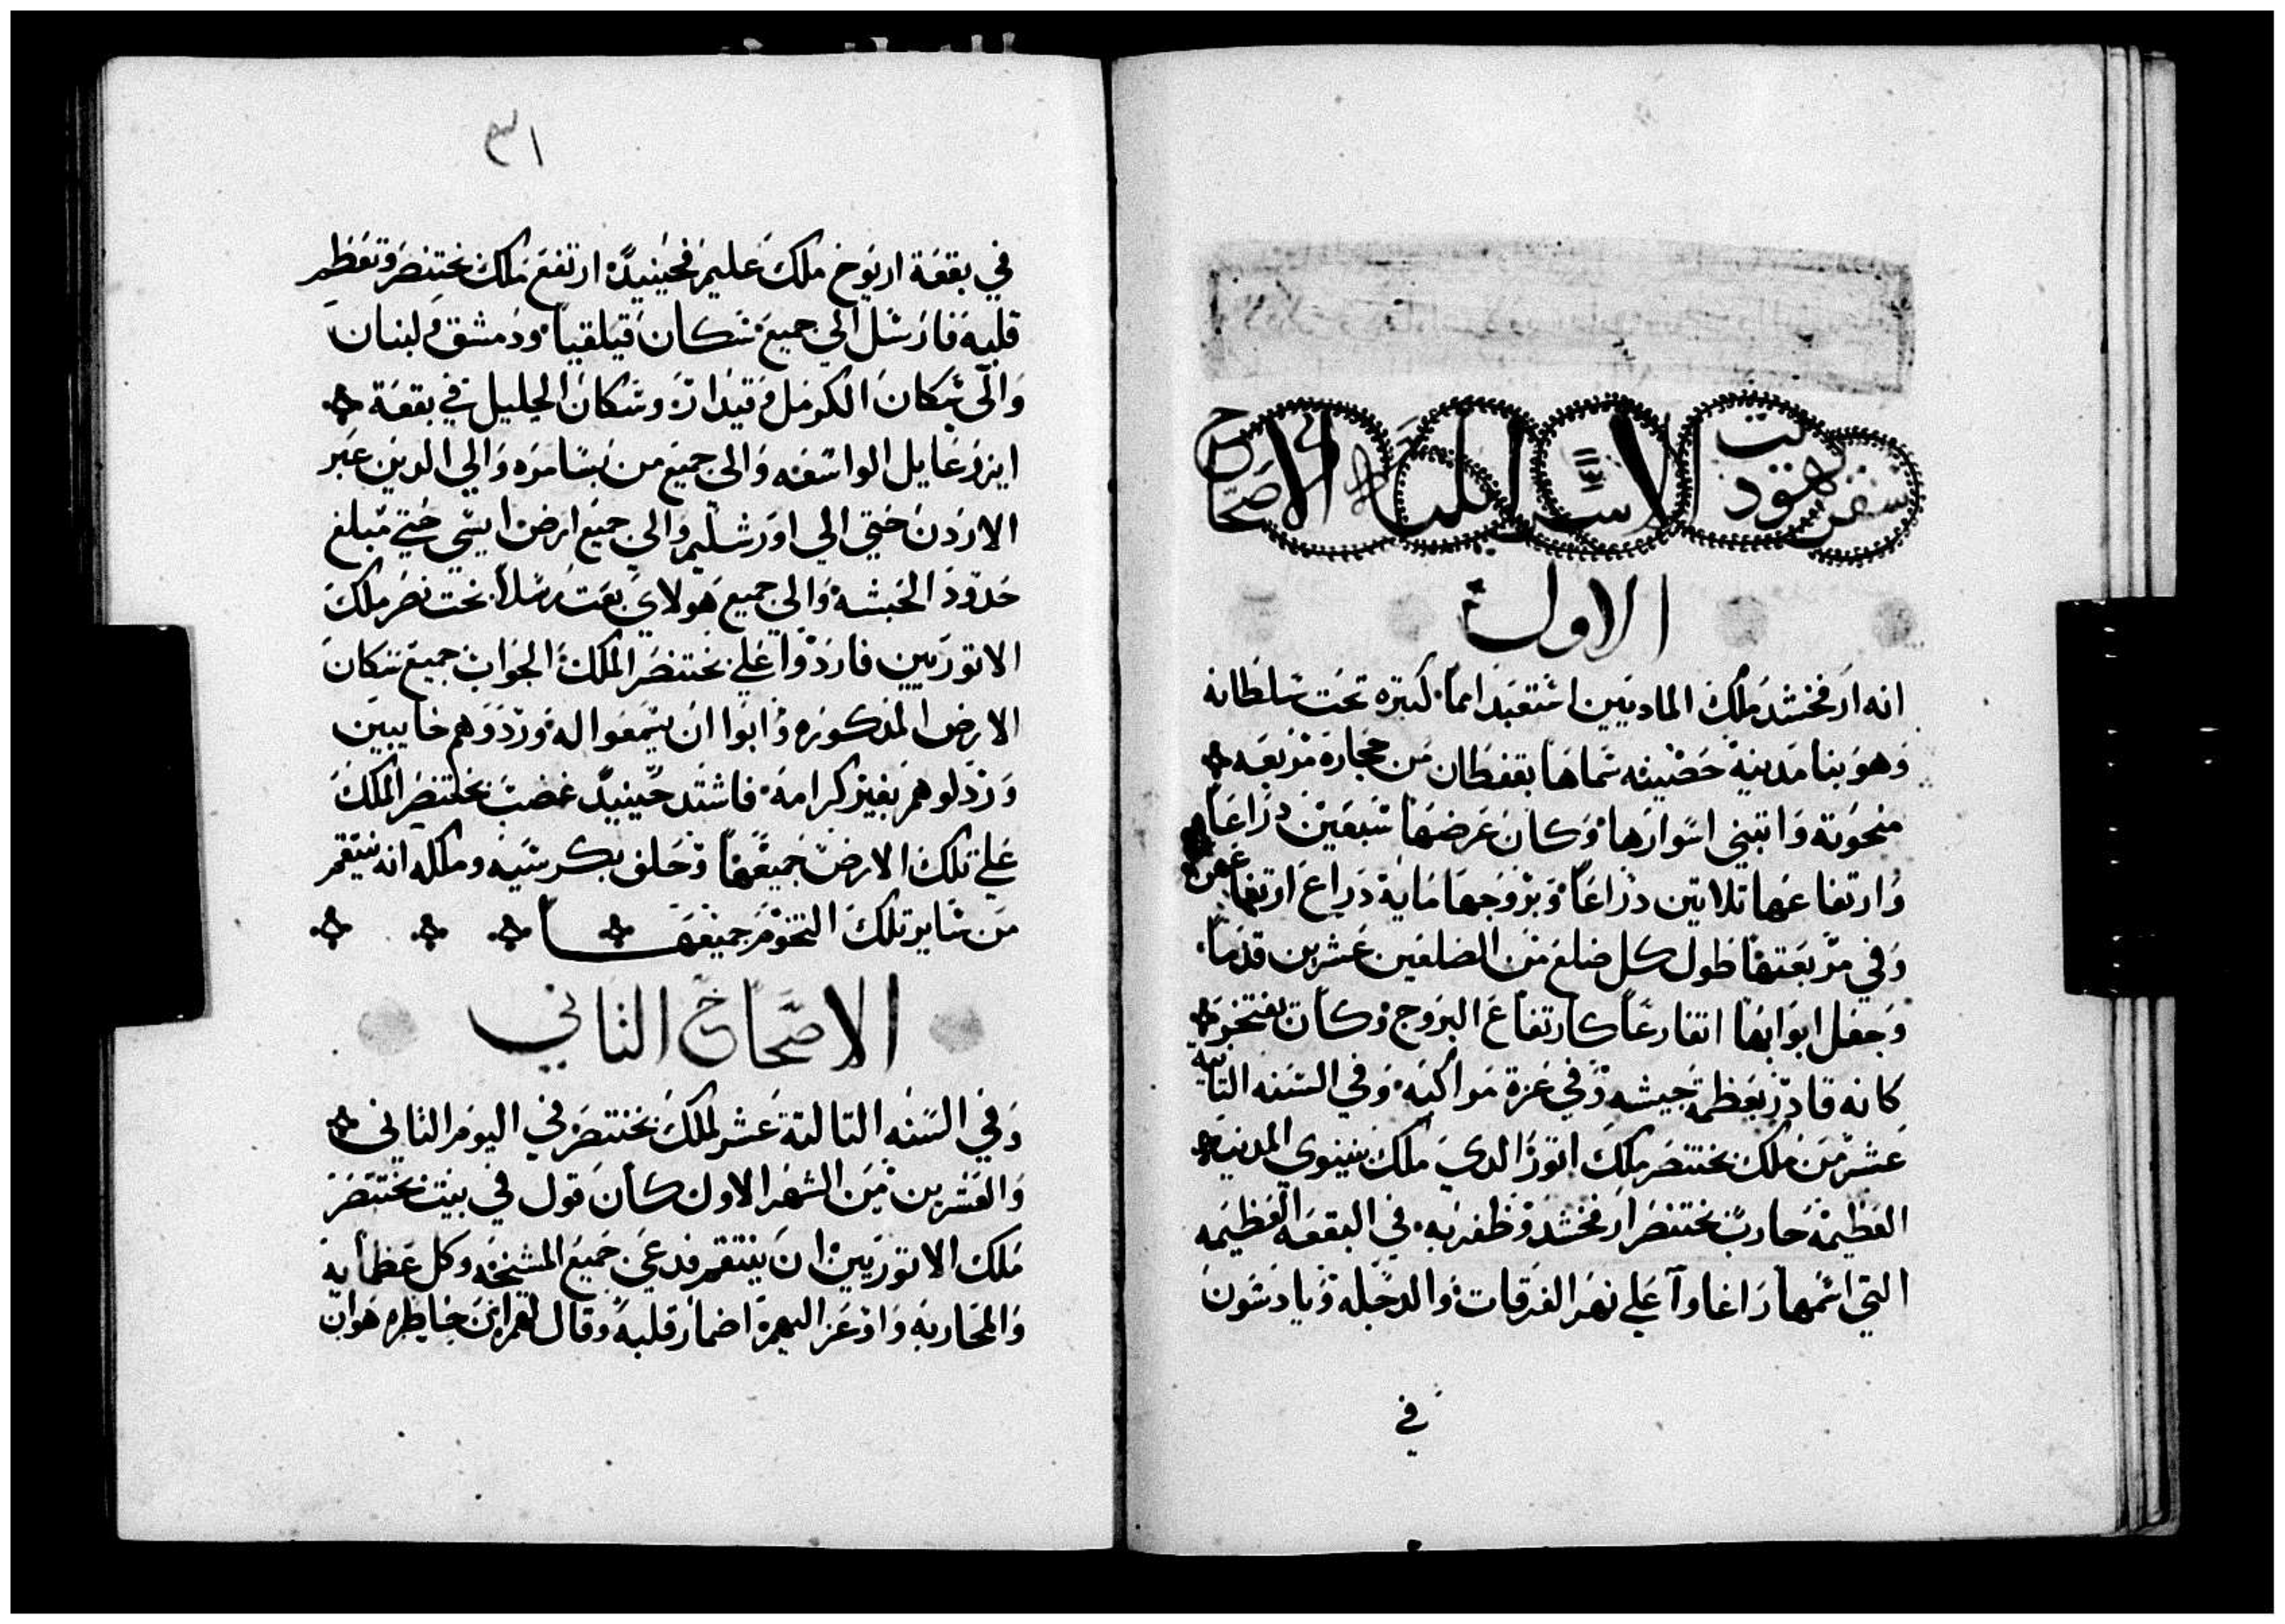 سفر يهوديت الاسرائيليه الاصحاح
الاول
انه ارفخشد ملك الماديين استعبد امما كتيره تحت سلطانه
وهو بنا مدينة حصينه سماها بقفطان من حجارة مربعه
منحوته وابتنى اسوارها وكان عرضها سبعين دراعا
وارتفاعها تلاتين دراعا وبروجها ماية دراع ارتفاعهن
وفي مربعتها طول كل ضلع من الضلعين عشرين قدما
وجعل ابوابها اتفارعا كارتفاع البروج وكان يفتخر
كانه قادر بعظمة جيشه وفي عزة مواكبه وفي السنه التانيه
عشر من ملك بختنصر ملك اتور الدي ملك بنينوي المدينة
العظيمة حارب بختنصر ارفخشد وظفر به في البقعه العظيمه
التي اسمها راغاوآ علي نهر الفرات والدجله ويادسون
في
٣١
في بقعة اريوخ ملك عليم فحينيدٍ ارتفع ملك بختنصر وتعظم
قلبه فارسل الي جميع سكان قيلقيا ودمشق ولبنان
والى سكان الكرمل وقيدار وسكان الجليل في بقعة
ايزرعايل الواسعه والى جميع من بسامره والي الدين عبر
الاردن حتي الي اورشليم والي جميع ارض ايسي حتي مبلغ
حدود الحبشه والي جميع هولاي بعت رسلا بخت نصر ملك
الاتوريين فاردوا علي بختنصر الملك الجواب جميع سكان
الارض المذكوره وابوا ان يسمعوا له وردوهم خايبين
وردلوهم بغير كرامة فاشتد حينيدٍ غضب بختنصر الملك
علي تلك الارض جميعها وحلف بكرسيه وملكه انه ينتقم
من ساير تلك التخوم جميعها
الاصحاح الثاني
وفي السنه التالتة عشر لملك بختنصر في اليوم الثاني
والعشرين من الشهر الاول كان قول في بيت بختنصر
ملك الاتوريين ان ينتقم فدعي جميع المشيخه وكل عظمايه
والمحاربه واوعز اليهم اضمار قلبه وقال لهم ان خاطره هو ان